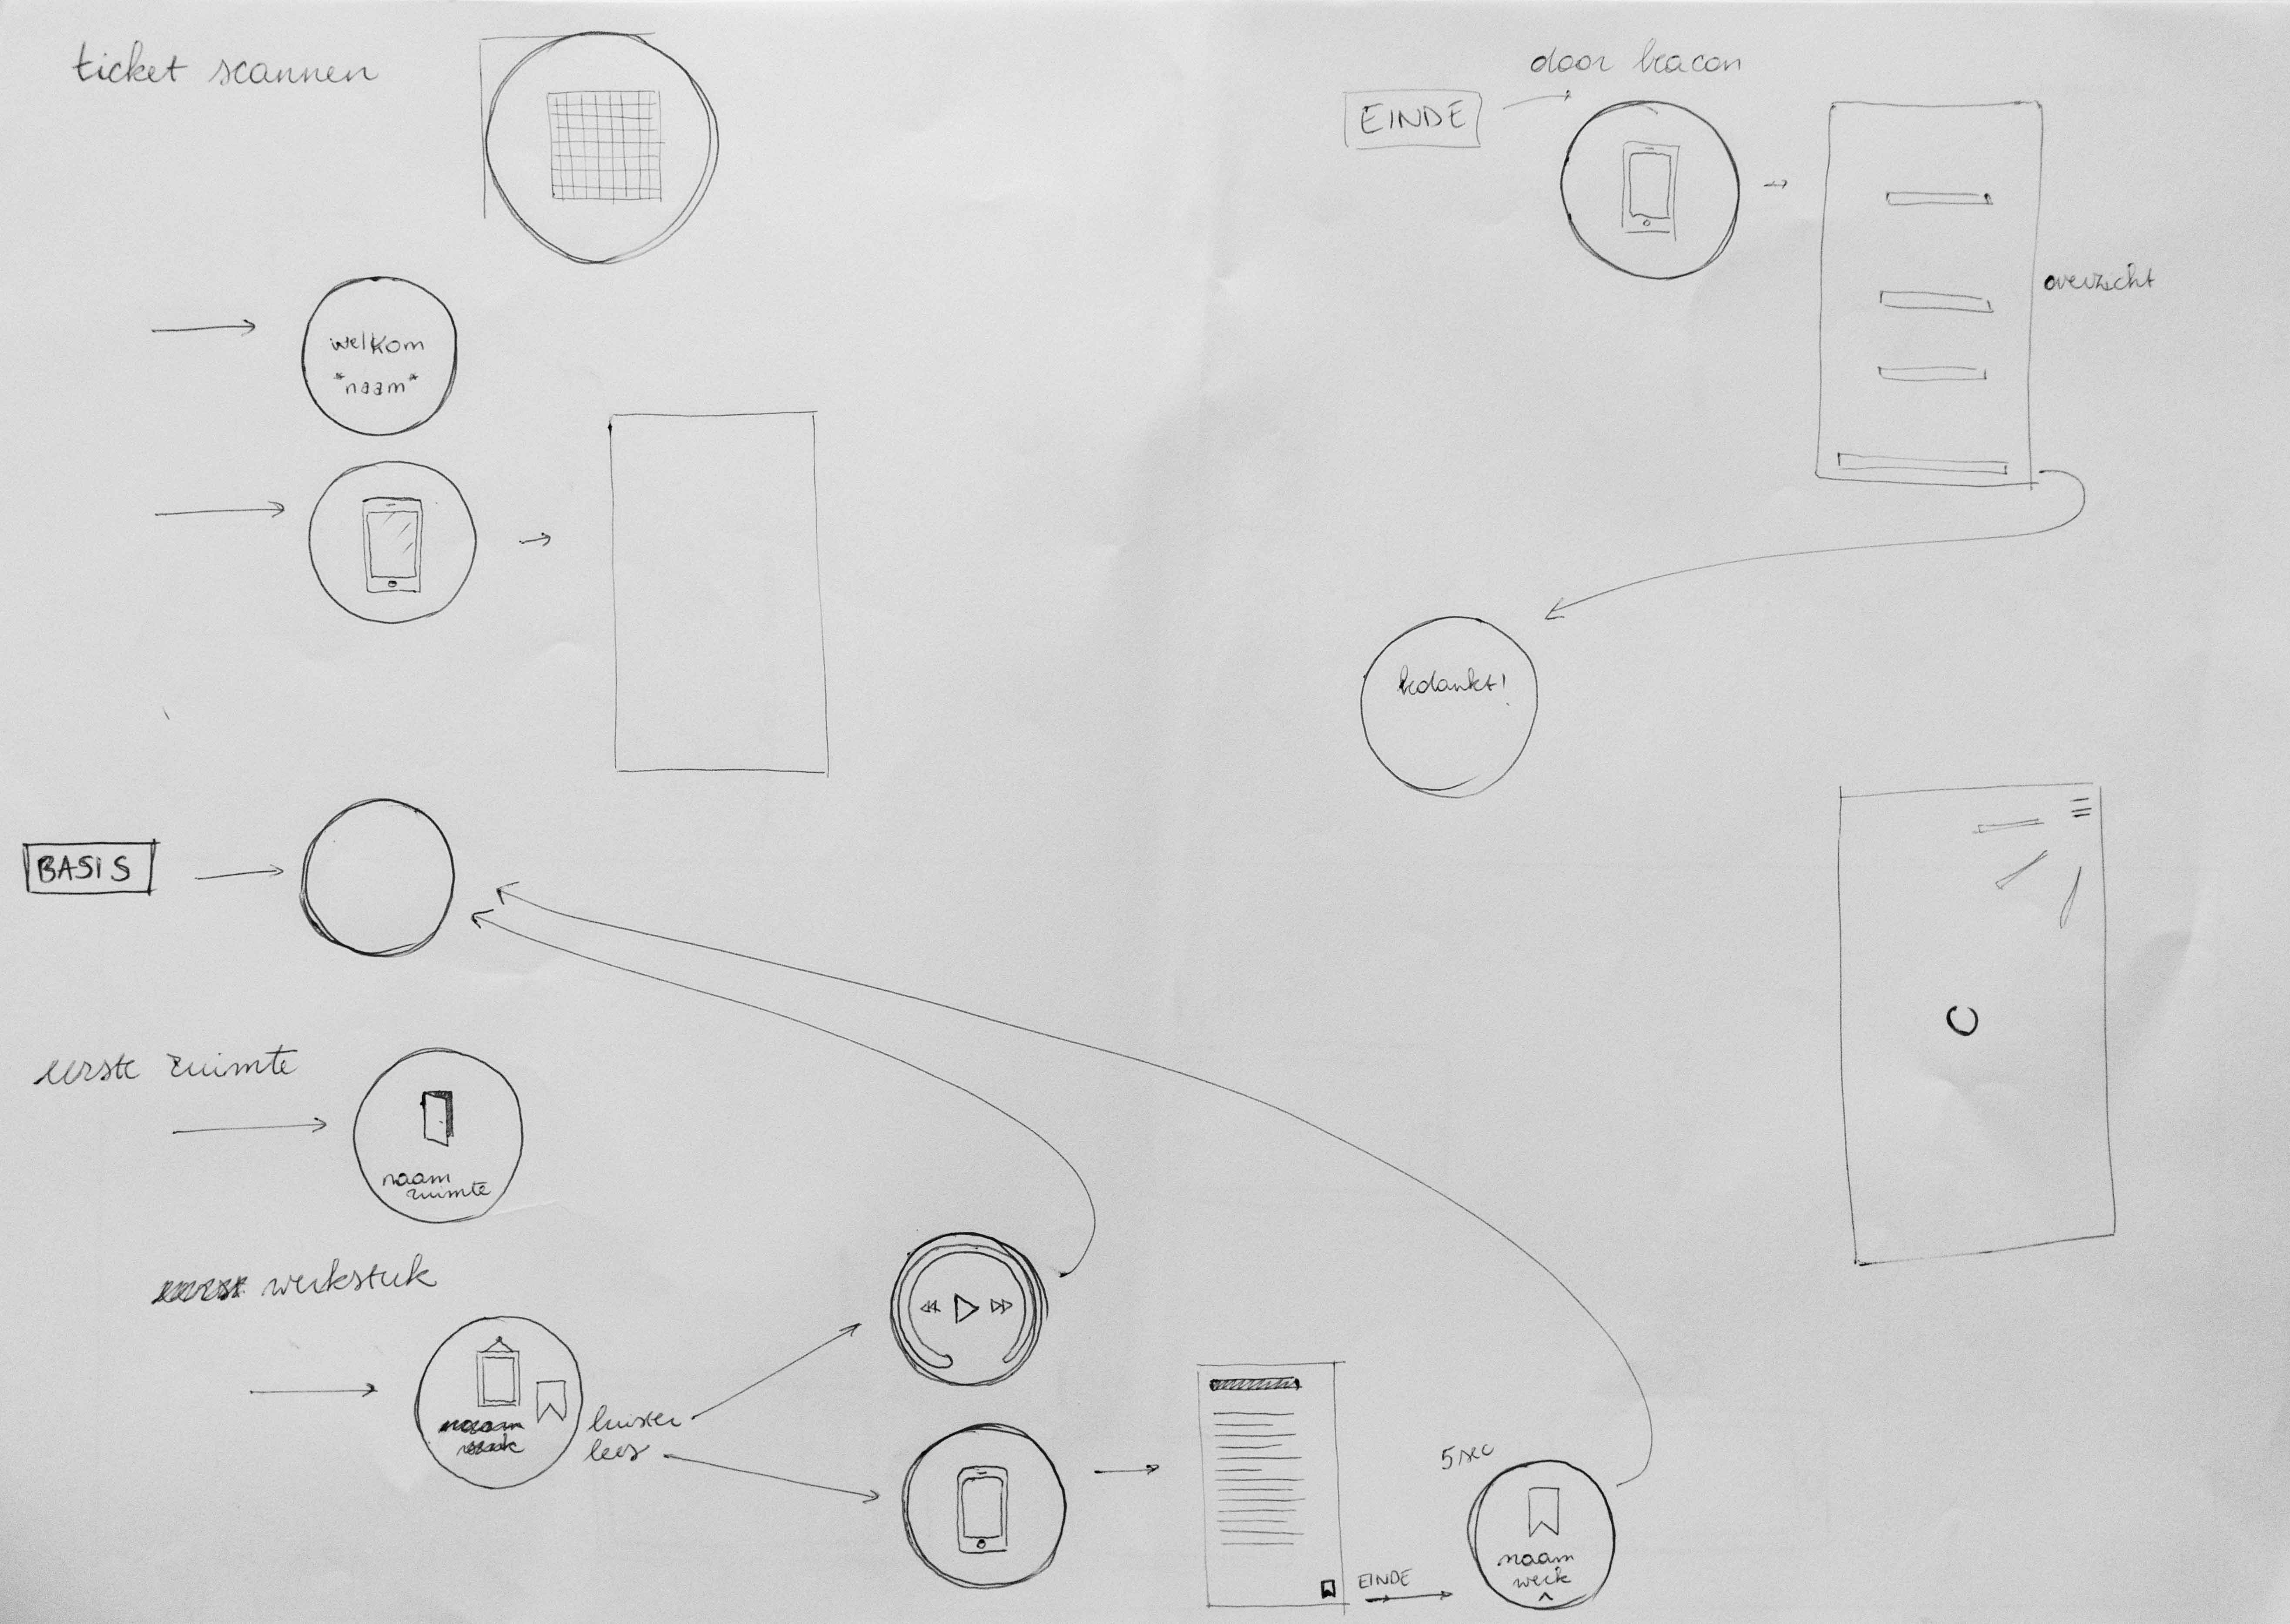 ticket scannen
welkom
*naam*
BASIS
eerste ruimte
naam
ruimte
werkstuk
luister
lees
5 sec
EINDE
naam
werk
door beacon
EINDE
overzicht
bedankt!